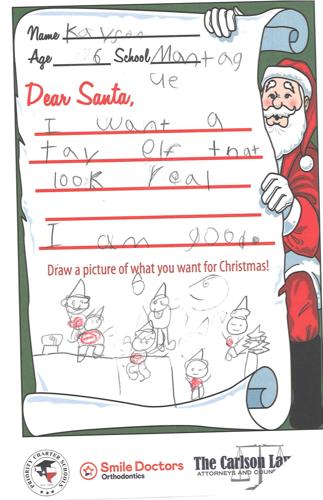 Name Kaysen
Age 6 School Montag
ue
Dear Santa,
I want a
tay elf that
look real
I am good.
Draw a picture of what you want for Christmas!
PRIORITY CHARTER SCHOOLS
Smile Doctors
Orthodontics
The Carlson La
ATTORNEYS AND COUN